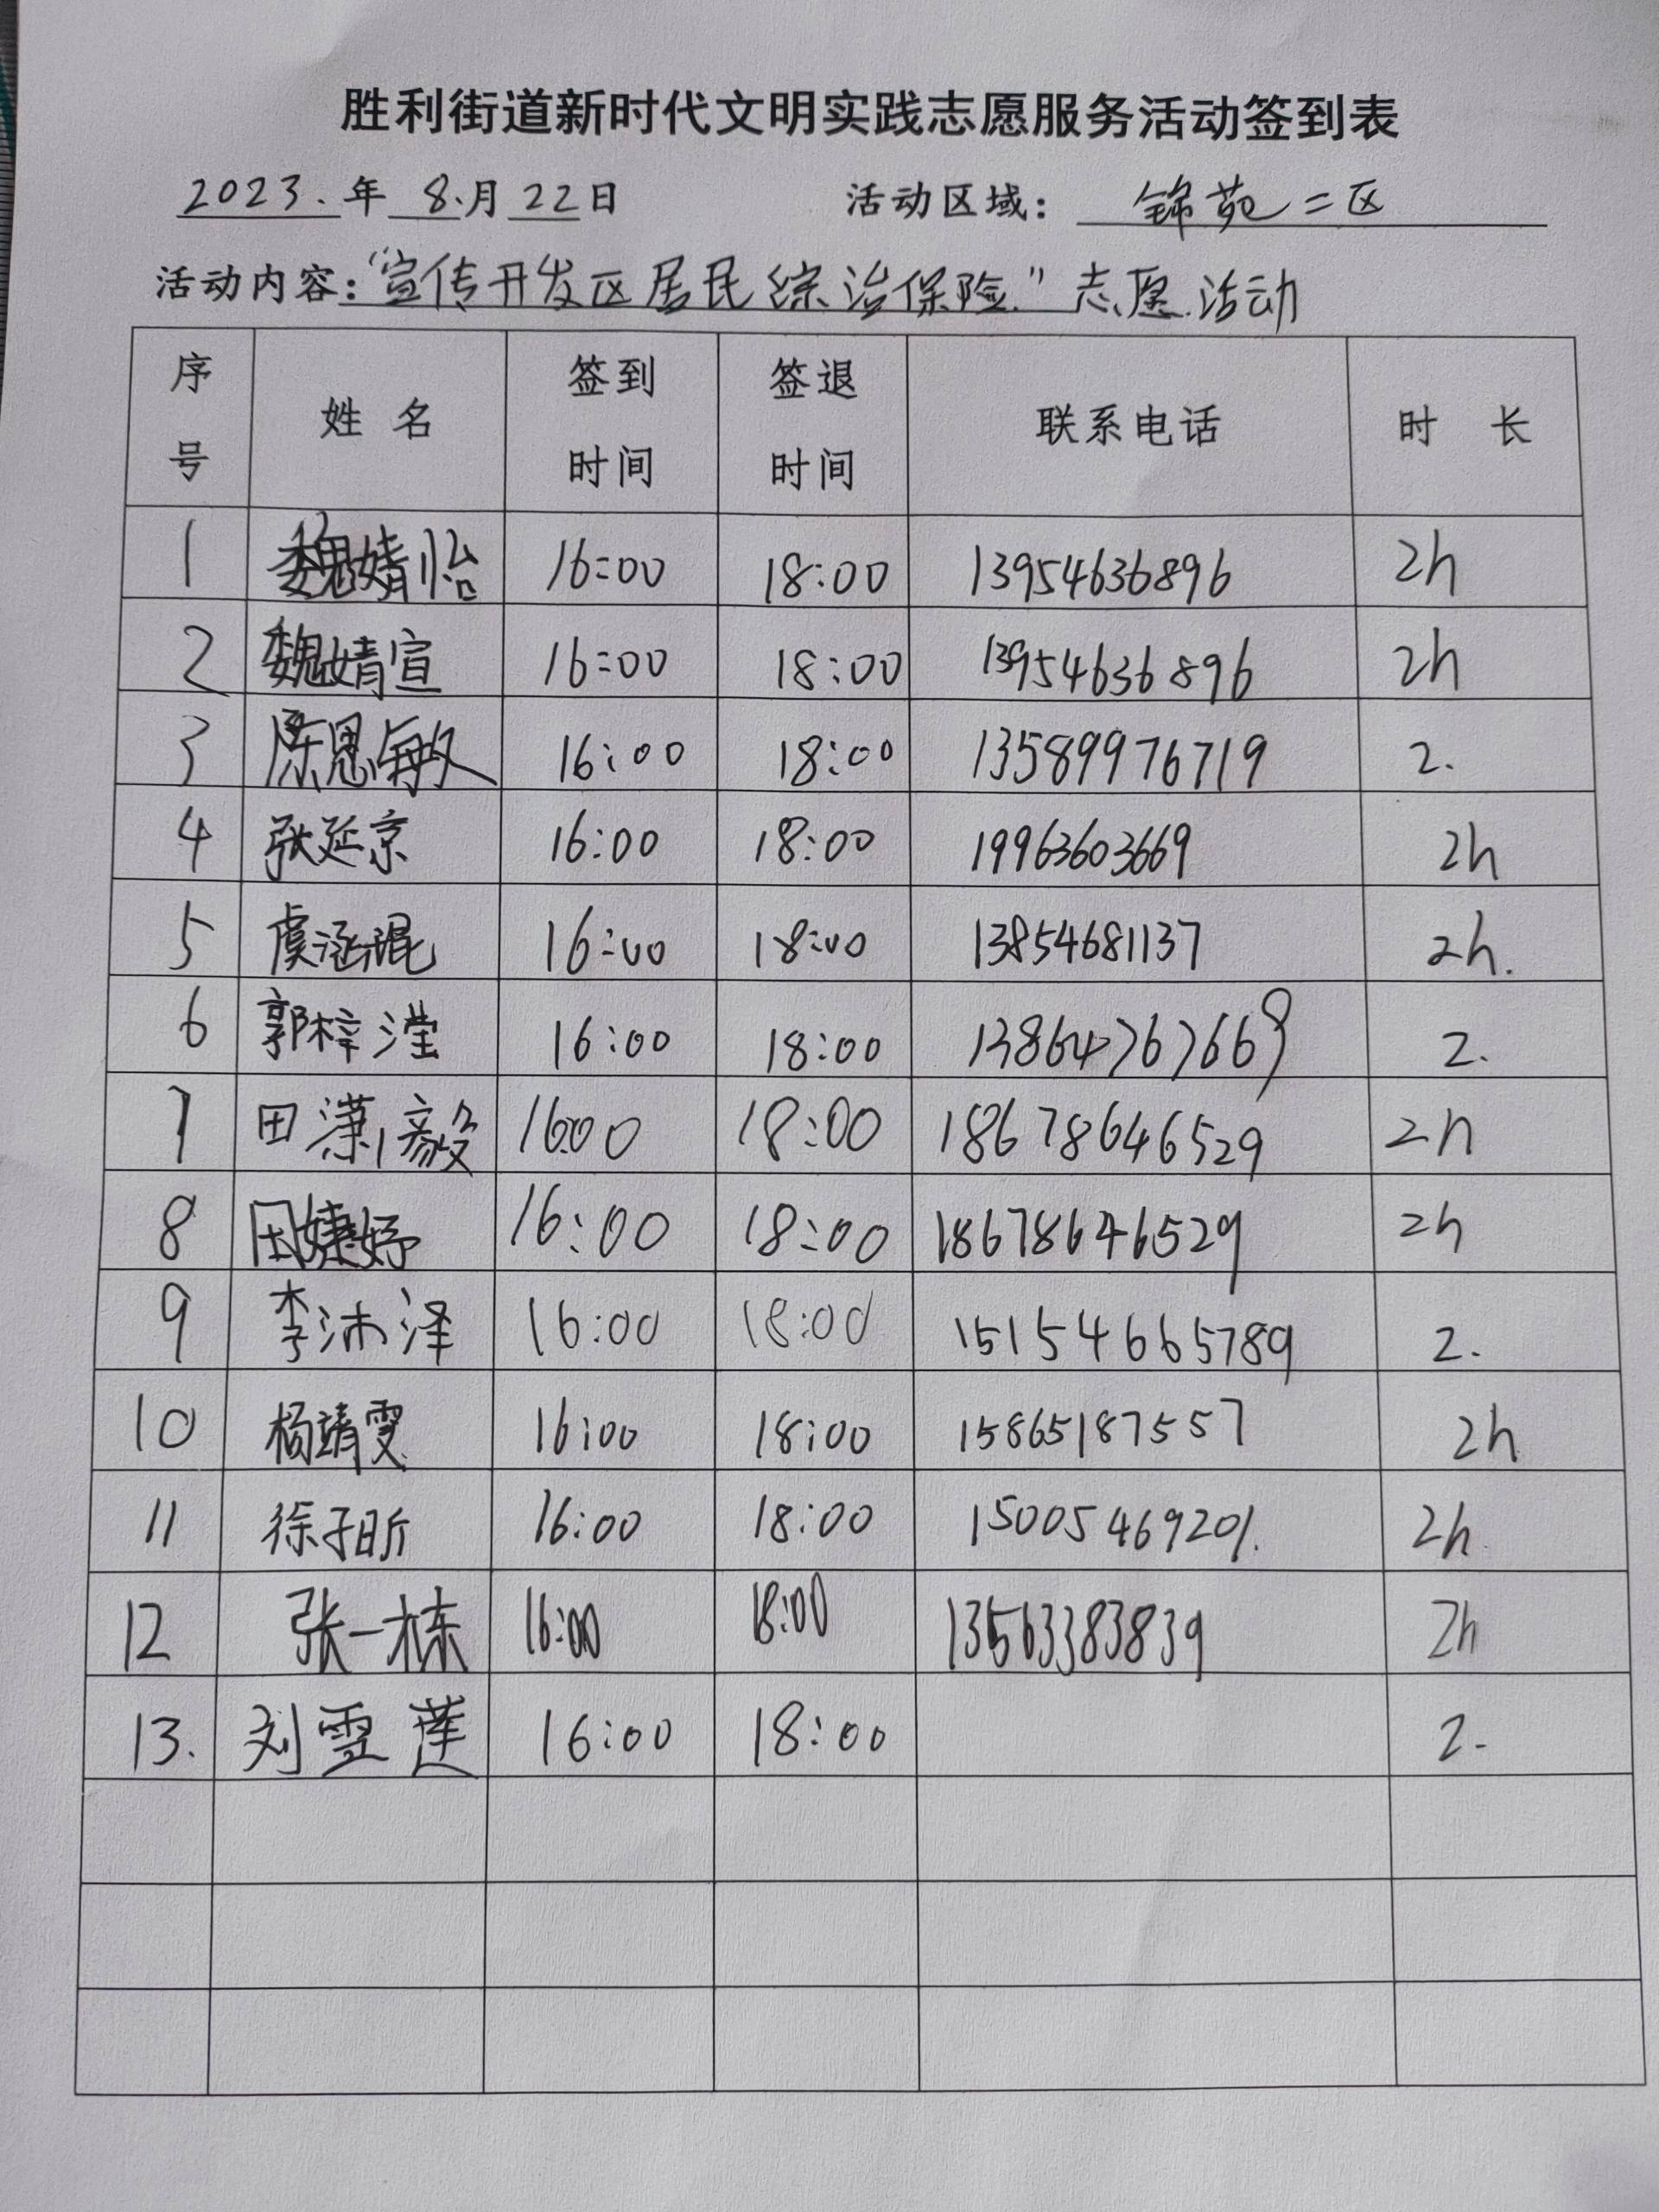 胜利街道新时代文明实践志愿服务活动签到表
2023.年 8.月 22日 活动区域: 锦苑二区
活动内容:“宣传开发区居民综治保险.”志愿活动
序号 姓名 签到时间 签退时间 联系电话 时长
1 魏婧怡 16:00 18:00 13954636896 2h
2 魏婧宣 16:00 18:00 13954636896 2h
3 陈思敏 16:00 18:00 13589976719 2.
4 张延京 16:00 18:00 19963603669 2h
5 虞涵琨 16:00 18:00 13854681137 2h.
6 郭梓滢 16:00 18:00 13864767669 2.
7 田潇毅 16:00 18:00 18678646529 2h
8 田婕妤 16:00 18:00 18678646529 2h
9 李沛泽 16:00 18:00 15154665789 2.
10 杨靖雯 16:00 18:00 15865187557 2h
11 徐子昕 16:00 18:00 15005469201. 2h.
12 张一栋 16:00 18:00 13563383839 2h
13. 刘雯莲 16:00 18:00 2.